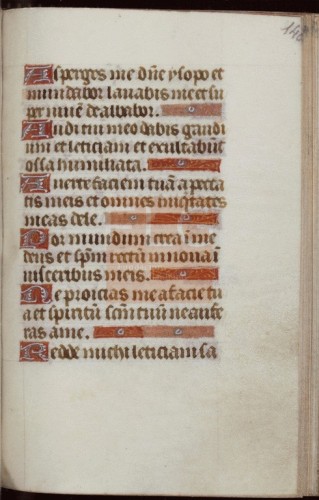 146
Asperges me dñe ysopo et
mundabor lauabis me et su
per niuem dealbabor.
Auditui meo dabis gaudi
um et leticiam et exultabũt
ossa humiliata.
Auerte faciem tuã a pecca
tis meis et omnes iniq̃tates
meas dele.
Cor mundum crea ĩ me
deus et sp̃m rectũ innoua ĩ
uisceribus meis.
Ne proicias me a facie tu
a et spiritũ sc̃m tuũ ne aufe
ras a me.
Redde michi leticiam sa